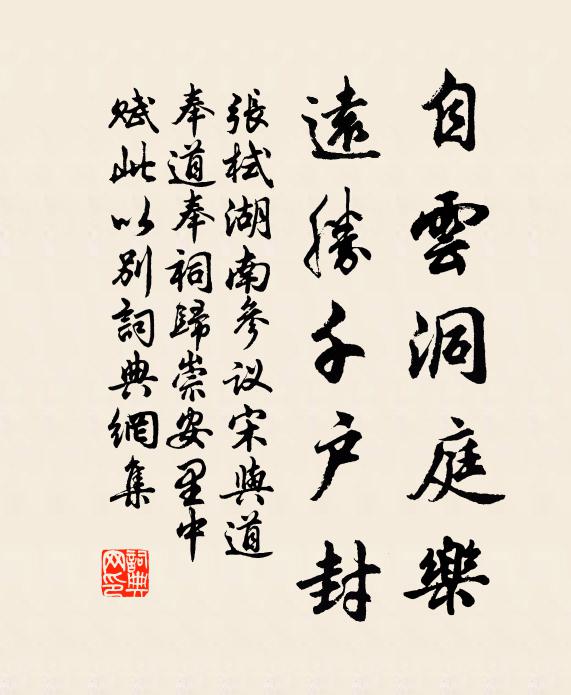 自雲洞庭樂
遠勝千户封
張栻湖南參议宋與道
奉道奉祠歸崇安里中
赋此以别詞典網集
詞典网印